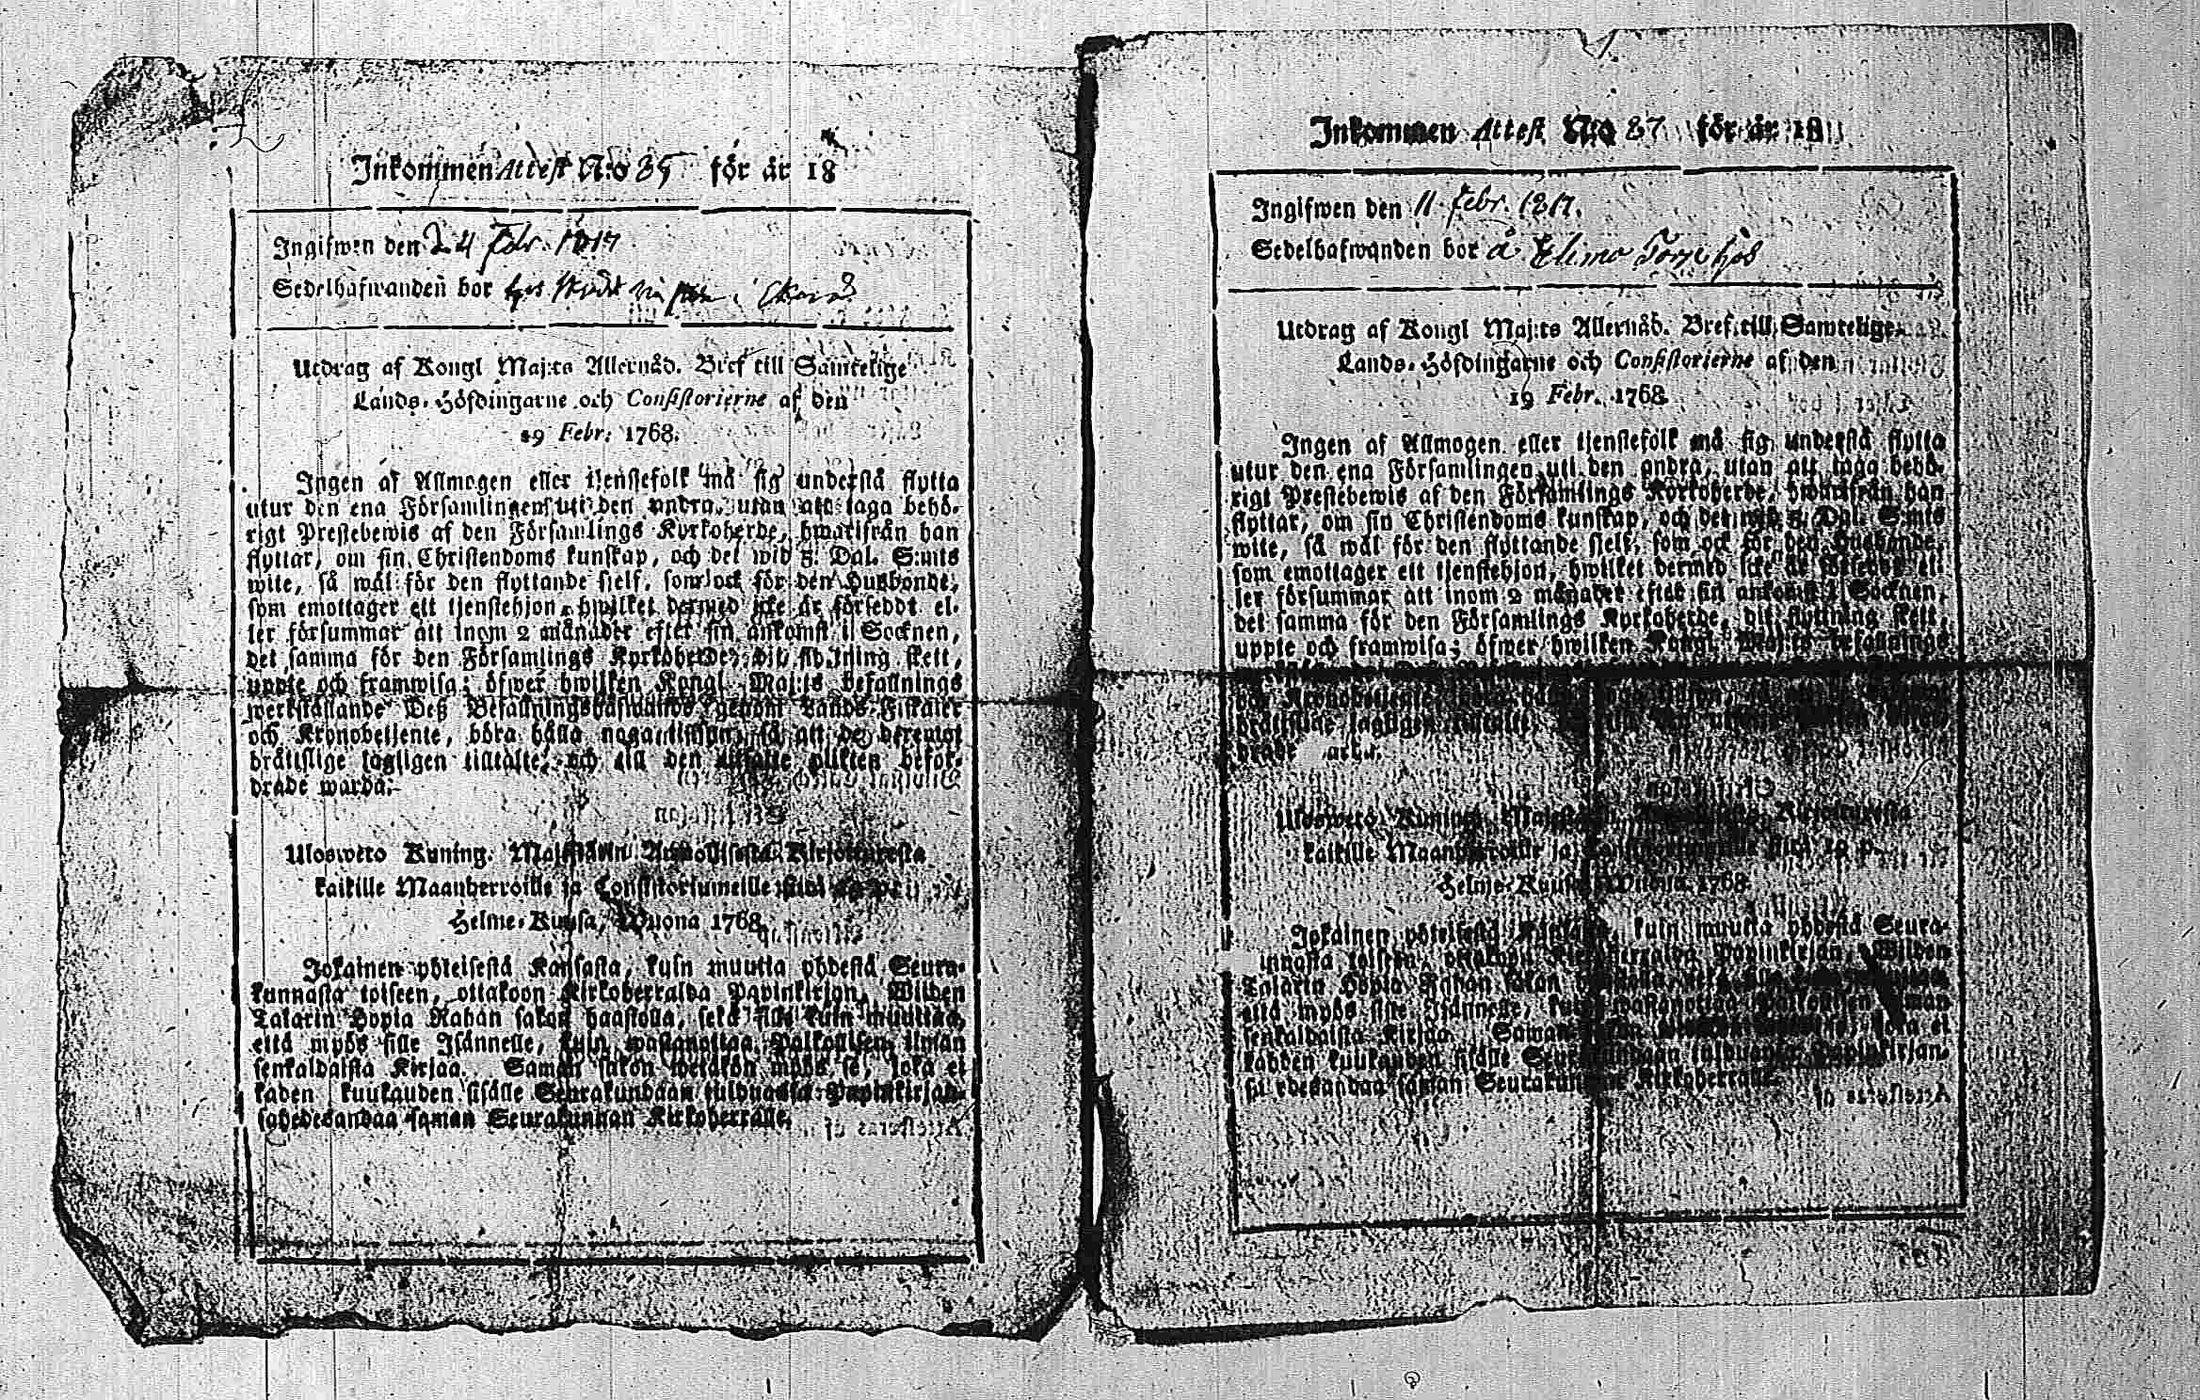 Inkommen Attest N:o 35 för år 18
Ingifwen den 24 Febr. 1817
Sedelhafwanden bor
Utdrag af Kongl Maj:ts Allernåd. Bref till Samtelige
Lands-Höfdingarne och Consistorierne af den
19 Febr. 1768.
Ingen af Allmogen eller tjenstefolk må sig understå flytta
utur den ena Församlingen uti den andra, utan att taga behö-
rigt Prestebewis af den Församlings Kyrkoherde, hwarifrån han
flyttar, om sin Christendoms kunskap, och det wid 5 Dal. S:mts
wite, så wäl för den flyttande sjelf, som ock för den Husbonde,
som emottager ett tjenstehjon, hwilket dermed icke är förseddt el-
ler försummar att inom 2 månader efter sin ankomst i Socknen,
det samma för den Församlings Kyrkoherde, dit flyttning skett,
uppte och framwisa; öfwer hwilken Kongl. Maj:ts befallnings
werkställande Deß Befallningshafwande genom Lands-Fiskaler
och Kronobetjente, böra hålla noga tillsyn, så att de deremot
bråttslige lagligen tilltalte, och till den utsatte plikten befor-
drade warda.
Ulosweto Kuning. Majestätin Armollisesta Kirjoituxesta
kaikille Maanherroille ja Consistoriumeille siitä 19 p.
Helme-Kuusa, Wuona 1768.
Jokainen yhteisestä Kansasta, kuin muutta yhdestä Seura-
kunnasta toiseen, ottakoon Kirkoherralda Papinkirjan, Wiiden
Talarin Hopia Rahan sakon haastolla, sekä sille kuin muuttaa,
että myös sille Isännelle, kuin wastanottaa Palkollisen ilman
senkaldaista Kirjaa. Saman sakon wetäkön myös se, joka ei
kaden kuukauden sisälle Seurakundaan tulduansa Papinkirjan-
sa edesandaa saman Seurakunnan Kirkoherralle.
Inkommen Attest N:o 87 för år 18
Ingifwen den 11 Febr. 1817.
Sedelhafwanden bor å Elimo
Utdrag af Kongl Maj:ts Allernåd. Bref till Samtelige
Lands-Höfdingarne och Consistorierne af den
19 Febr. 1768
Ingen af Allmogen eller tjenstefolk må sig understå flytta
utur den ena Församlingen uti den andra, utan att taga behö-
rigt Prestebewis af den Församlings Kyrkoherde, hwarifrån han
flyttar, om sin Christendoms kunskap, och det wid 5 Dal. S:mts
wite, så wäl för den flyttande sjelf, som ock för den Husbonde,
som emottager ett tjenstehjon, hwilket dermed icke är försedt el-
ler försummar att inom 2 månader efter sin ankomst i Socknen,
det samma för den Församlings Kyrkoherde, dit flyttning skett,
uppte och framwisa; öfwer hwilken Kongl. Maj:ts befallnings
och Kronobetjente,
bråttslige lagligen tilltalte,
drade
Ulosweto Kuning. Majestätin Kirjoituxesta
kaikille Maanherroille ja Consistoriumeille siitä 19 p.
Helme-Kuusa, Wuona 1768
Jokainen yhteisestä Kansasta, kuin muutta yhdestä Seura-
kunnasta toiseen, ottakoon Kirkoherralda Papinkirjan, Wiiden
Talarin Hopia Rahan sakon
että myös sille Isännelle, kuin wastanottaa Palkollisen ilman
senkaldaista Kirjaa. Saman joka ei
kahden kuukauden sisälle Seurakundaan tulduansa Papinkirjan-
sa edesandaa saman Seurakunnan Kirkoherralle.